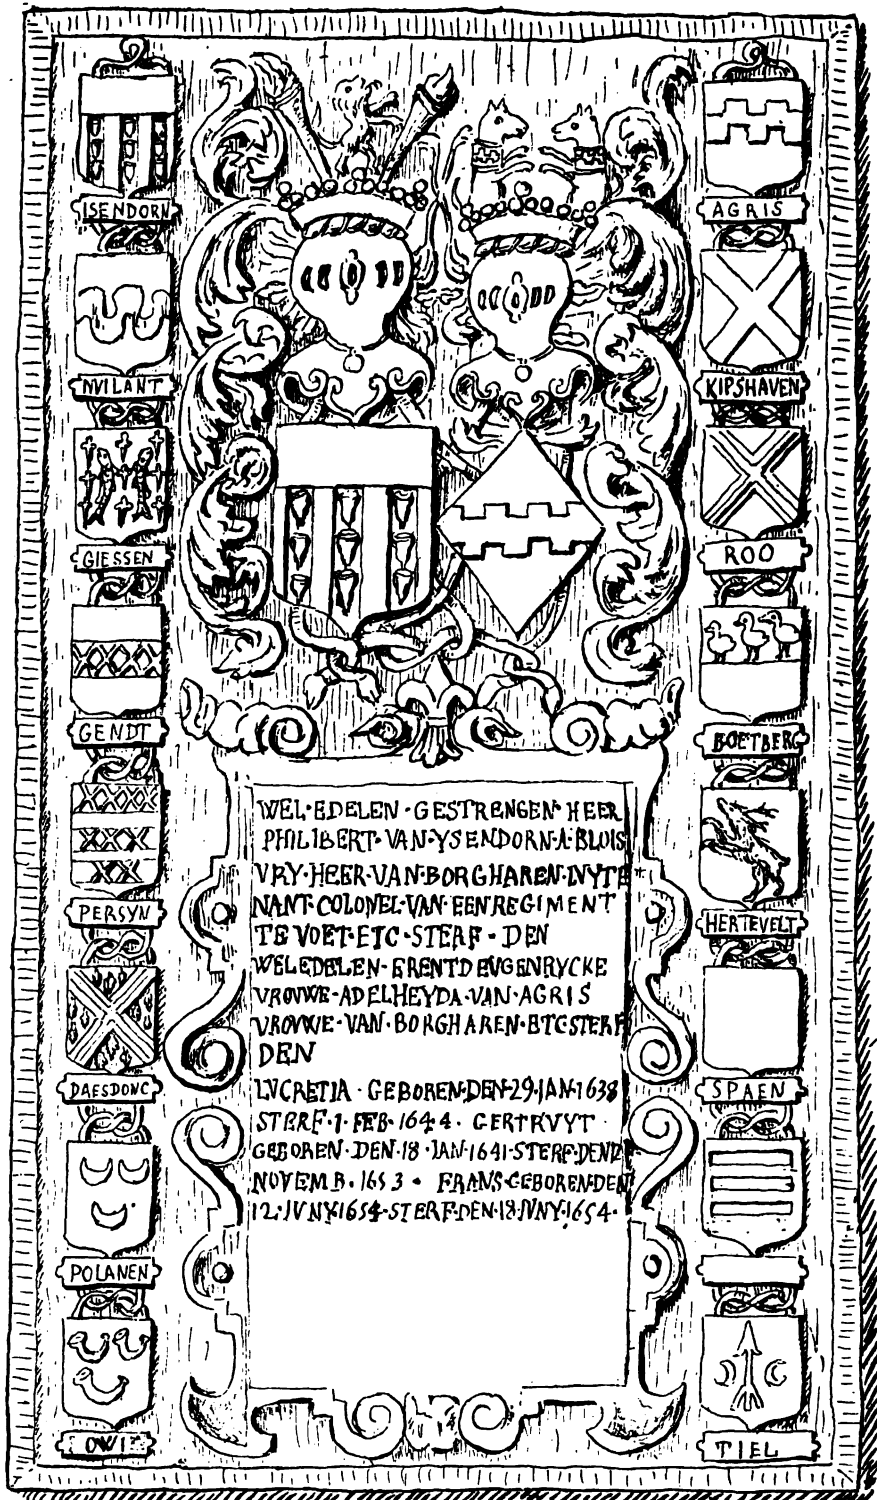 ISENDORN
NVILANT
GIESSEN
GENDT
PERSYN
DAESDONC
POLANEN
AGRIS
KIPSHAVEN
ROO
BOETBERG
HERTEVELT
SPAEN
TIEL
WEL·EDELEN·GESTRENGEN·HEER
PHILIBERT·VAN·YSENDORN·A·BLOIS
VRY·HEER·VAN·BORGHAREN·LVYTE
NANT·COLONEL·VAN·EEN REGIMENT
TE VOET·ETC·STERF·DEN
WELEDELEN·ERENTDEVGENRYCKE
VROVWE·ADELHEYDA·VAN·AGRIS
VROVWE·VAN·BORGHAREN·ETC STERF
DEN
LVCRETIA·GEBOREN·DEN·29·JAN·1638
STERF·1·FEB·1644·GERTRVYT
GEBOREN·DEN·18·IAN·1641·STERF·DEN
NOVEMB·1653·FRANS·GEBOREN·DEN
12·IVNY·1654·STERF·DEN·18·IVNY·1654·